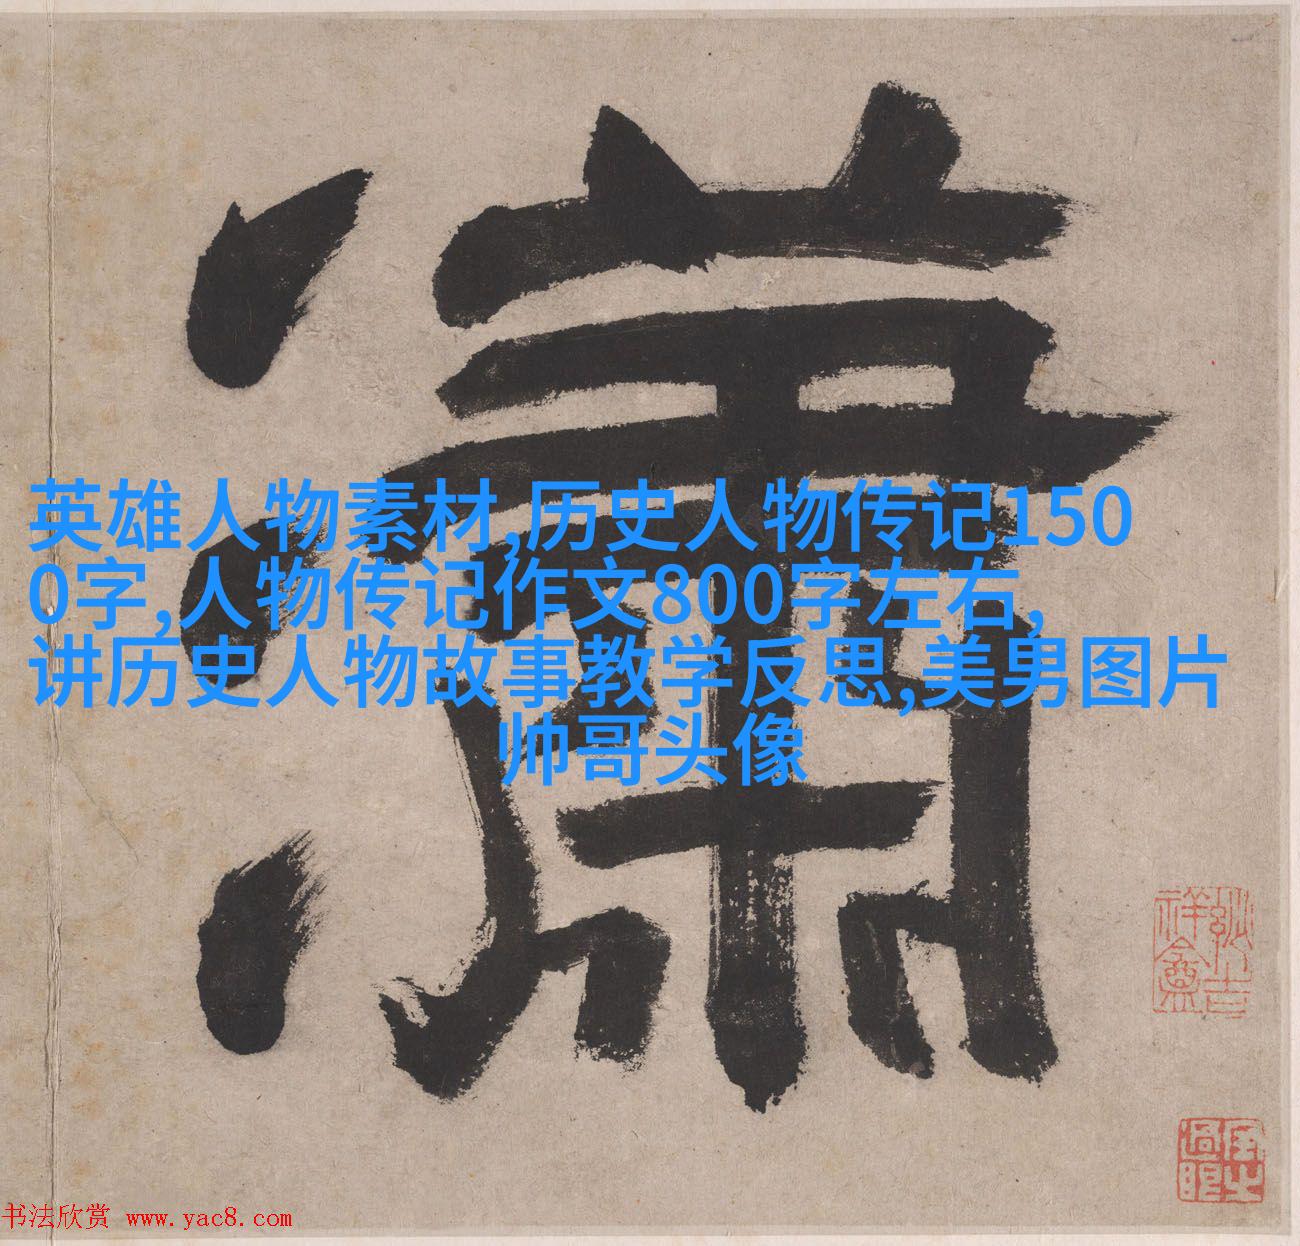 瀟
英雄人物素材,历史人物传记150
0字,人物传记作文800字左右,
讲历史人物故事教学反思,美男图片
帅哥头像
书法欣赏 www.yac8.com